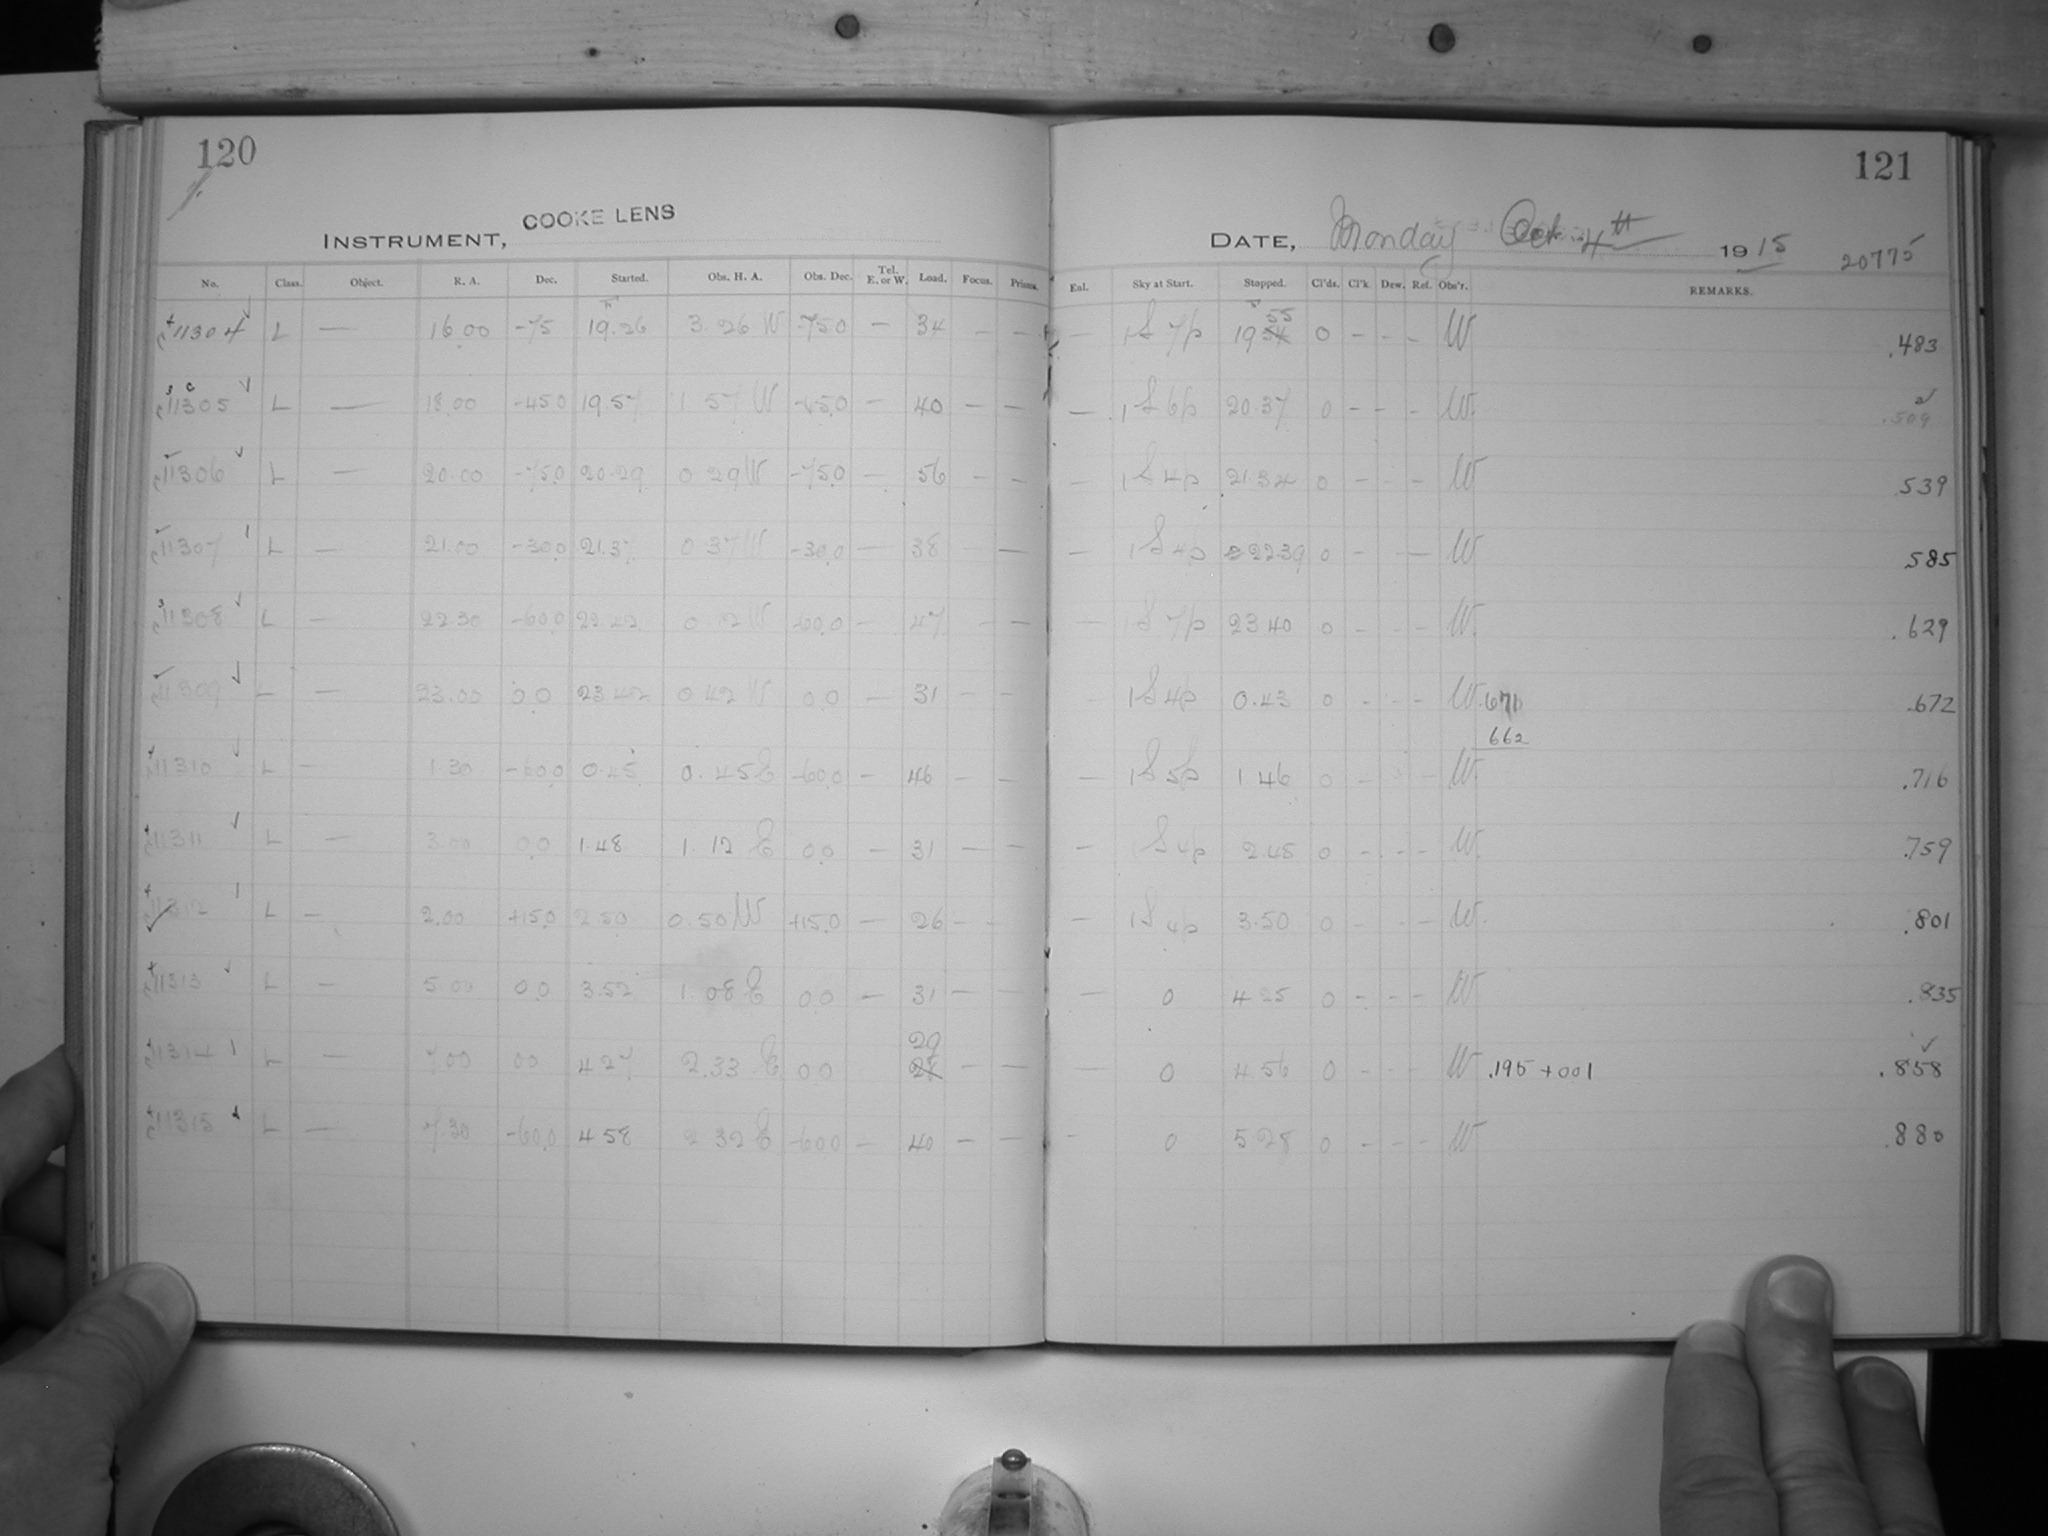 120
INSTRUMENT, COOKE LENS
No. Class. Object. R. A. Dec. Started. Obs. H. A. Obs. Dec. Tel. E. or W. Load. Focus. Prisms.
11304 L — 16.00 -75 19.26 3.26 W -75.0 — 34 — —
11305 L — 18.00 -45.0 19.57 1.57 W -45.0 — 40 — —
11306 L — 20.00 -75.0 20.29 0 29 W -75.0 — 56 — —
11307 L — 21.00 -30.0 21.37 0 37 W -30.0 — 38 — —
11308 L — 22 30 -60.0 22.42 0.12 W -60.0 — 47 — —
11309 L — 23.00 0.0 23 42 0 42 W 0.0 — 31 — —
11310 L — 1.30 -60.0 0.45 0.45 E -60.0 — 46 — —
11311 L — 3.00 0.0 1.48 1.12 E 0.0 — 31 — —
11312 L — 2.00 +15.0 2 50 0.50 W +15.0 — 26 — —
11313 L — 5.00 0.0 3.52 1.08 E 0.0 — 31 — —
11314 L — 7.00 0 0 4 27 2.33 E 0 0 29 — —
11315 L — 7.30 -60.0 4 58 2 32 E -60.0 — 40 — —
121
DATE, Monday Oct. 4th 1915 20775
Exl. Sky at Start. Stopped. Cl'ds. Cl'k. Dew. Ref. Obs'r. REMARKS.
— 1S 7p 19 55 0 - - - W .483
— 1S 6p 20.37 0 - - - W. .509
— 1S 4p 21.34 0 - - - W 539
— 1S 4p 22 39 0 - — W .585
— 1S 7p 23 40 0 - - - W. .629
— 1S 4p 0.43 0 - - - W. 671 .672
662
— 1S 5p 1 46 0 - - - W. .716
— 1S 4p 2.48 0 - - - W. .759
— 1S 4p 3.50 0 - - - W. .801
— 0 4 25 0 - - - W .835
— 0 4.56 0 - - - W .195 +001 .858
- 0 5 28 0 - - - W .880